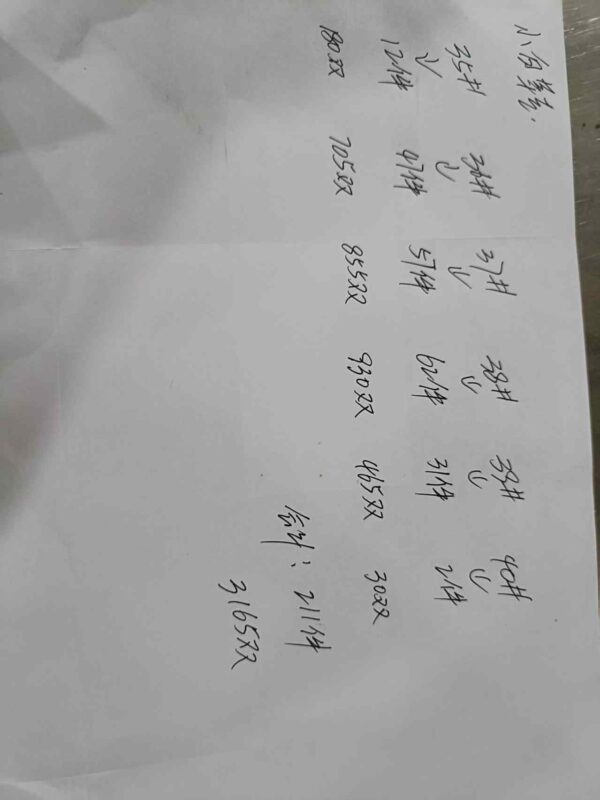 小白鞋
35# 36# 37# 38# 39# 40#
↓ ↓ ↓ ↓ ↓ ↓
12件 47件 57件 62件 31件 2件
180双 705双 855双 930双 465双 30双
合计：211件
3165双